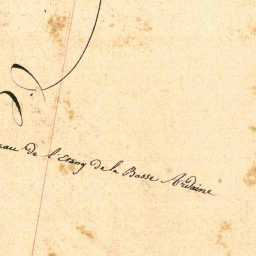 eau de l'etang de la Basse Ardoine